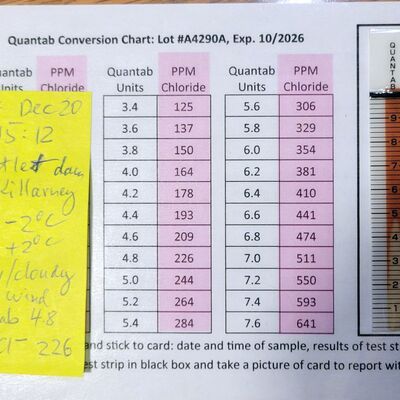 Quantab Conversion Chart: Lot #A4290A, Exp. 10/2026
uantab PPM Quantab PPM Quantab PPM
Units Chloride Units Chloride Units Chloride
3.4 125 5.6 306
3.6 137 5.8 329
3.8 150 6.0 354
4.0 164 6.2 381
4.2 178 6.4 410
4.4 193 6.6 441
4.6 209 6.8 474
4.8 226 7.0 511
5.0 244 7.2 550
5.2 264 7.4 593
5.4 284 7.6 641
Dec 20
15:12
tlet dam
Killarney
-2°C
+2°C
/cloudy
wind
ab 4.8
Cl- 226
and stick to card: date and time of sample, results of test st
est strip in black box and take a picture of card to report wit
QUANTAB
9
8
7
6
5
4
3
2
1